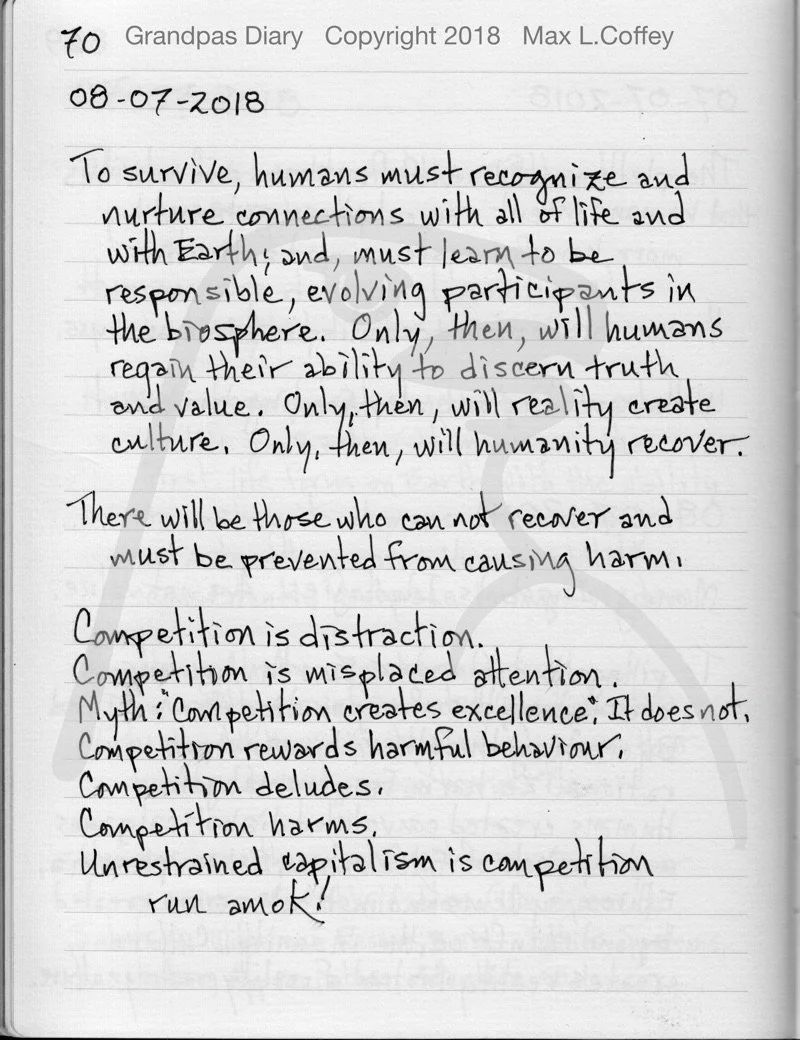 70 Grandpas Diary Copyright 2018 Max L.Coffey
08-07-2018
To survive, humans must recognize and
nurture connections with all of life and
with Earth; and, must learn to be
responsible, evolving participants in
the biosphere. Only, then, will humans
regain their ability to discern truth
and value. Only, then, will reality create
culture. Only, then, will humanity recover.
There will be those who can not recover and
must be prevented from causing harm.
Competition is distraction.
Competition is misplaced attention.
Myth: "Competition creates excellence". It does not.
Competition rewards harmful behaviour.
Competition deludes.
Competition harms.
Unrestrained capitalism is competition
run amok!